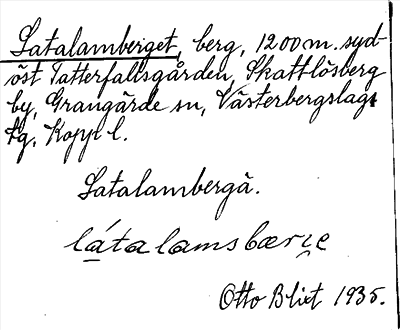 Satalamberget, berg, 1200 m. syd-
öst Tatterfallsgården, Skattlösberg
by, Grangärde sn, Västerbergslags
tg, Kopp. l.
Satalambergä.
látalamsbærje
Otto Blixt 1935.